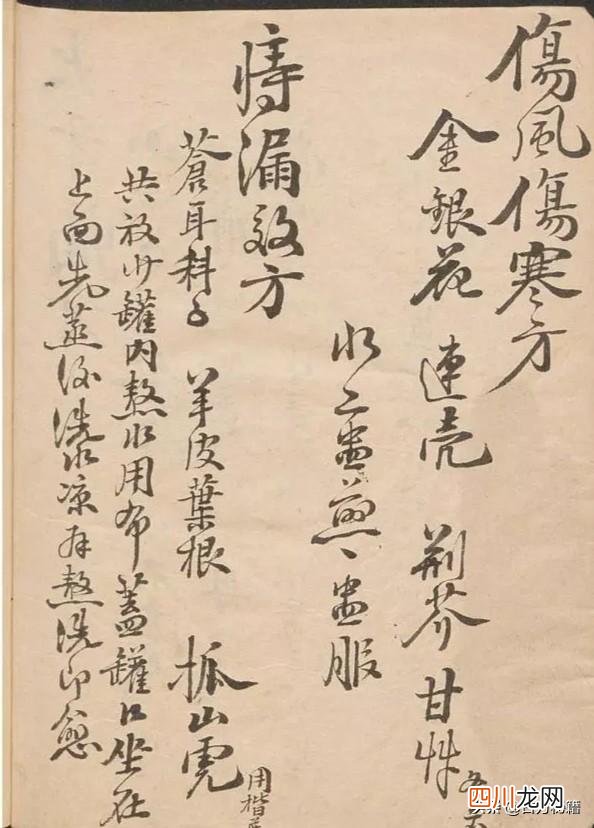 傷風傷寒方
金銀花 連壳 荆芥 甘艸
水二盅煎一盅服
痔漏效方
蒼耳科子 羊皮葉根 抓山虎
共放沙罐内熬水用布蓋罐口坐在
上面先蒸後洗水凉再熬洗即愈
四川龙网